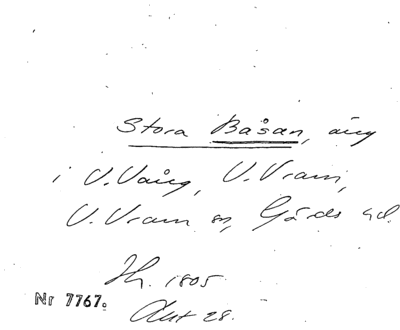 Stora Båsan, äng
i V. Vång, V. Vram,
V. Vram sn, Gärds hd.
Sk. 1805
Akt 28.
Nr 7767.